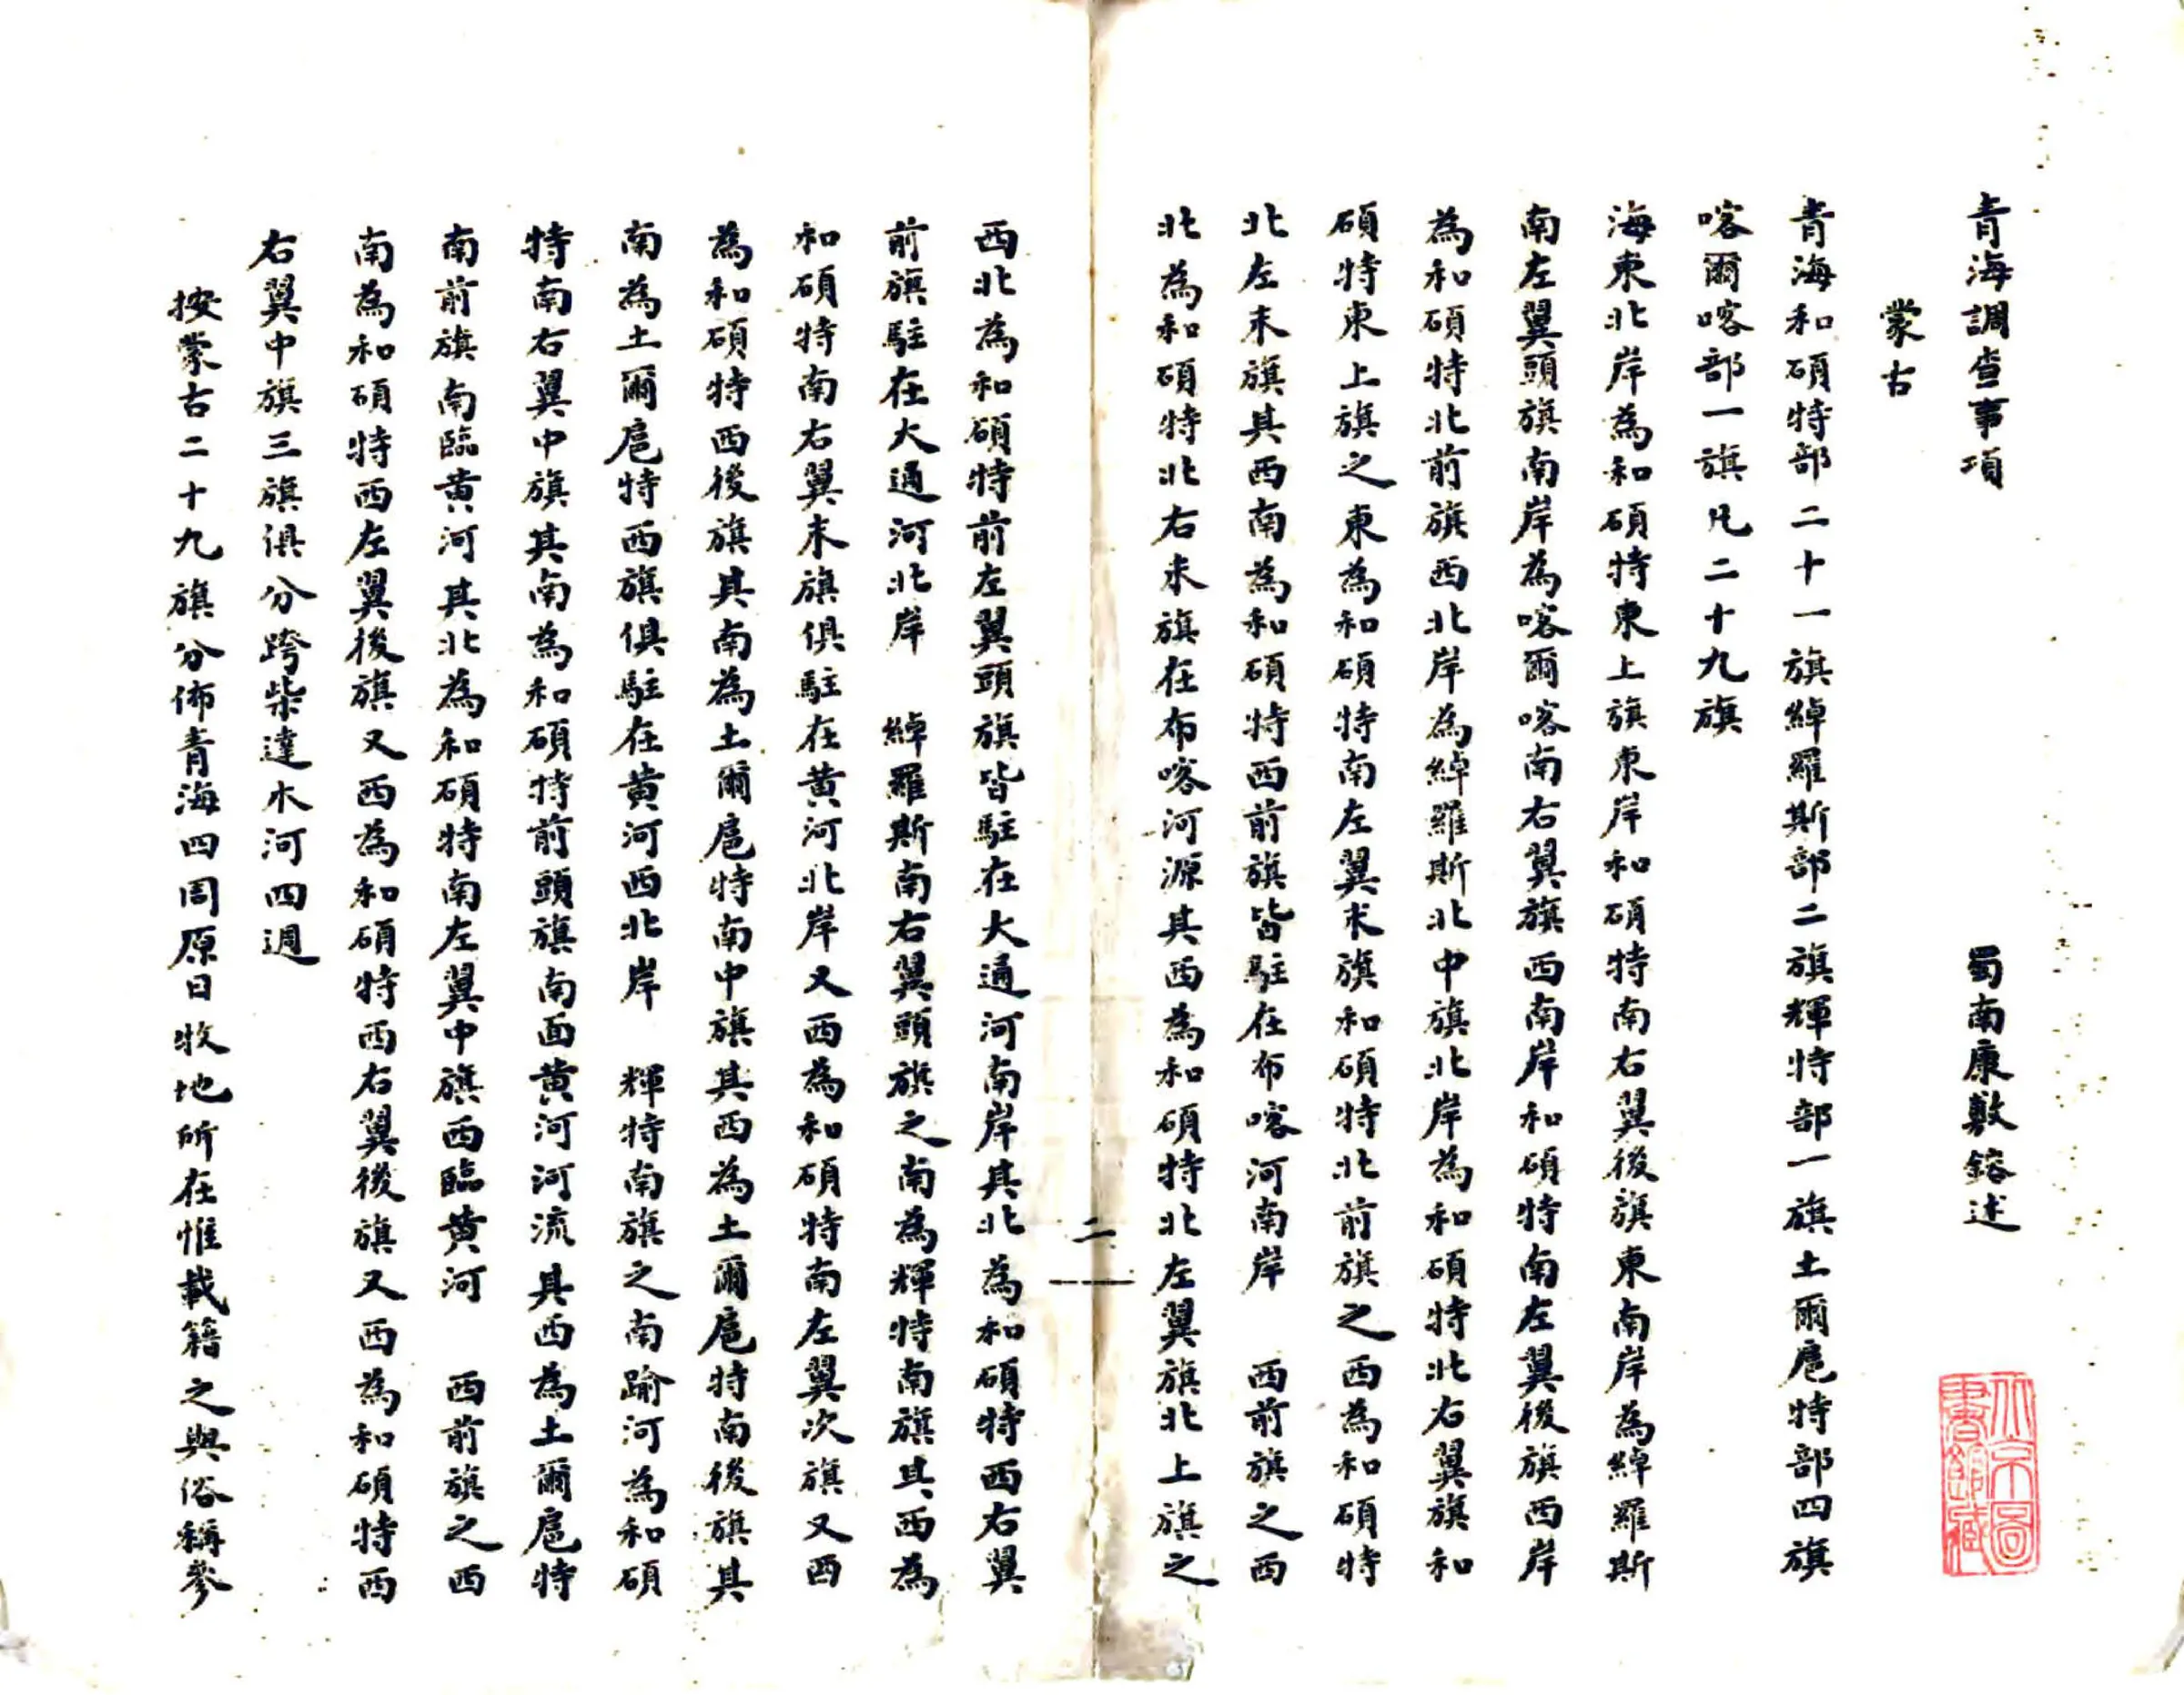 青海調查事項
蜀南康敷鎔述
蒙古
青海和碩特部二十一旗綽羅斯部二旗輝特部一旗土爾扈特部四旗
喀爾喀部一旗凡二十九旗
海東北岸為和碩特東上旗東岸和碩特南右翼後旗東南岸為綽羅斯
南左翼頭旗南岸為喀爾喀南右翼旗西南岸和碩特南左翼後旗西岸
為和碩特北前旗西北岸為綽羅斯北中旗北岸為和碩特北右翼旗和
碩特東上旗之東為和碩特南左翼末旗和碩特北前旗之西為和碩特
北左末旗其西南為和碩特西前旗皆駐在布喀河南岸 西前旗之西
北為和碩特北右末旗在布喀河源其西為和碩特北左翼旗北上旗之
二
西北為和碩特前左翼頭旗皆駐在大通河南岸其北為和碩特西右翼
前旗駐在大通河北岸 綽羅斯南右翼頭旗之南為輝特南旗其西為
和碩特南右翼末旗俱駐在黄河北岸又西為和碩特南左翼次旗又西
為和碩特西後旗其南為土爾扈特南中旗其西為土爾扈特南後旗其
南為土爾扈特西旗俱駐在黄河西北岸 輝特南旗之南踰河為和碩
特南右翼中旗其南為和碩特前頭旗南面黄河河流其西為土爾扈特
南前旗南臨黄河其北為和碩特南左翼中旗西臨黄河 西前旗之西
南為和碩特西左翼後旗又西為和碩特西右翼後旗又西為和碩特西
右翼中旗三旗俱分跨柴達木河四週
按蒙古二十九旗分佈青海四周原日牧地所在惟載籍之與俗稱參
大京圖
書館藏